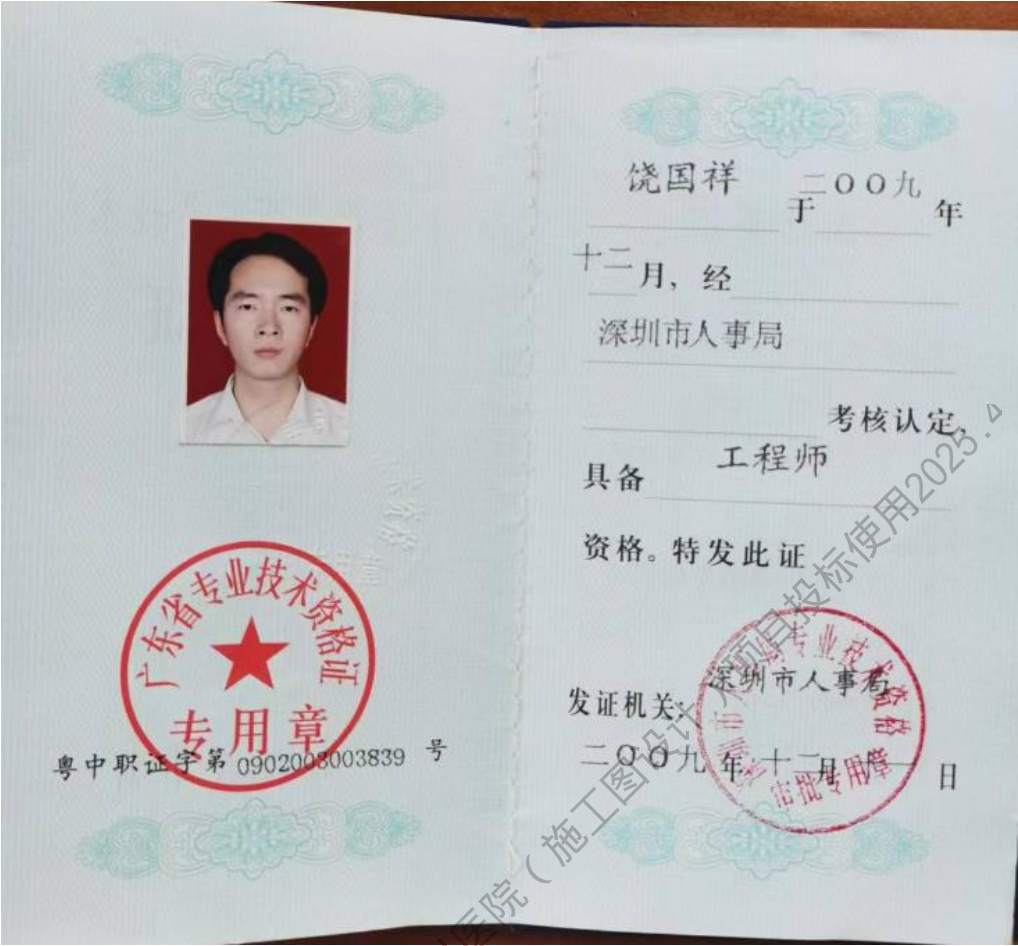 广东省专业技术资格证
专用章
粤中职证字第 0902003003839 号
饶国祥 于 二〇〇九 年
十二 月，经
深圳市人事局
考核认定，
具备 工程师
资格。特发此证
发证机关：深圳市人事局
二〇〇九 年 十二 月 日
专业技术资格
审批专用章
医院（施工图设计）项目投标使用2025.4